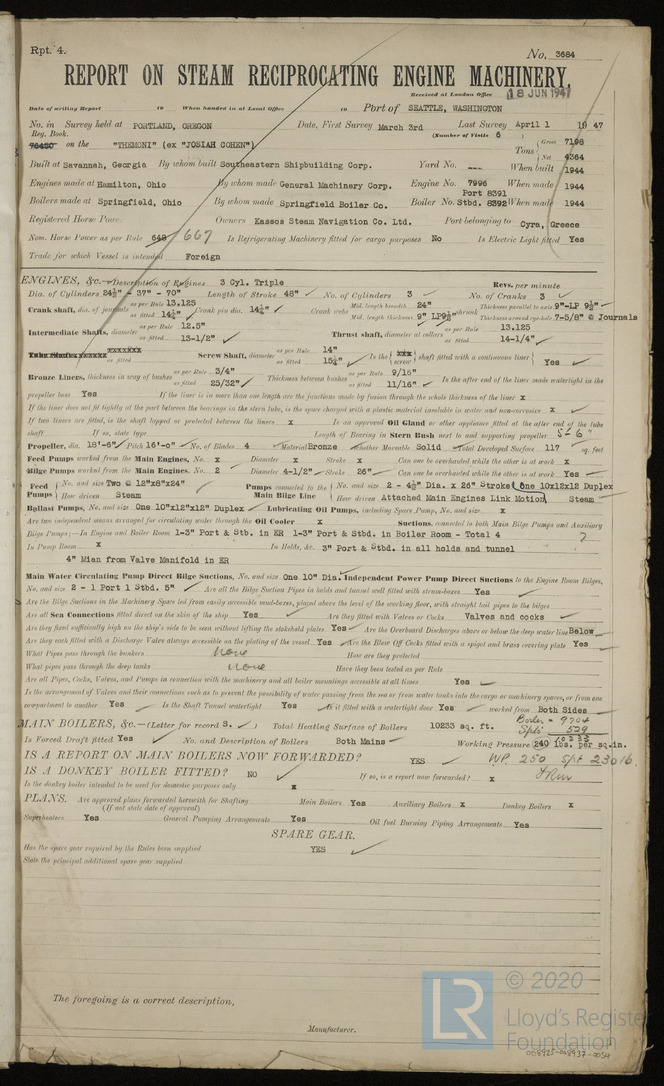 Rpt. 4.
No. 3684
REPORT ON STEAM RECIPROCATING ENGINE MACHINERY.
Received at London Office 18 JUN 1947
Date of writing Report 19 When handed in at Local Office 19 Port of SEATTLE, WASHINGTON
No. in Survey held at PORTLAND, OREGON Date, First Survey March 3rd Last Survey April 1 1947
Reg. Book. (Number of Visits 6)
on the "THEMONI" (ex "JOSIAH COHEN") Tons Gross 7198 Net 4364
Built at Savannah, Georgia By whom built Southeastern Shipbuilding Corp. Yard No. When built 1944
Engines made at Hamilton, Ohio By whom made General Machinery Corp. Engine No. 7996 When made 1944
Boilers made at Springfield, Ohio By whom made Springfield Boiler Co. Boiler No. Port 8391 Stbd. 8392 When made 1944
Registered Horse Power Owners Kassos Steam Navigation Co. Ltd. Port belonging to Cyra, Greece
Nom. Horse Power as per Rule 648 667 Is Refrigerating Machinery fitted for cargo purposes No Is Electric Light fitted Yes
Trade for which Vessel is intended Foreign
ENGINES, &c.—Description of Engines 3 Cyl. Triple Revs. per minute
Dia. of Cylinders 24½" - 37" - 70" Length of Stroke 48" No. of Cylinders 3 No. of Cranks 3
Crank shaft, dia. of journals as per Rule 13.125 as fitted 14¼" Crank pin dia. 14¼" Crank webs Mid. length breadth 24" Mid. length thickness 9" LP9½" shrunk Thickness parallel to axis 9"-LP 9½" Thickness around eye-hole 7-5/8" @ Journals
Intermediate Shafts, diameter as per Rule 12.5" as fitted 13-1/2" Thrust shaft, diameter at collars as per Rule 13.125 as fitted 14-1/4"
Screw Shaft, diameter as per Rule 14" as fitted 15¼" Is the screw shaft fitted with a continuous liner Yes
Bronze Liners, thickness in way of bushes as per Rule 3/4" as fitted 25/32" Thickness between bushes as per Rule 9/16" as fitted 11/16" Is the after end of the liner made watertight in the
propeller boss Yes If the liner is in more than one length are the junctions made by fusion through the whole thickness of the liner x
If the liner does not fit tightly at the part between the bearings in the stern tube, is the space charged with a plastic material insoluble in water and non-corrosive x
If two liners are fitted, is the shaft lapped or protected between the liners x Is an approved Oil Gland or other appliance fitted at the after end of the tube
shaft If so, state type Length of Bearing in Stern Bush next to and supporting propeller 5'-6"
Propeller, dia. 18'-6" Pitch 16'-0" No. of Blades 4 Material Bronze whether Moveable Solid Total Developed Surface 117 sq. feet
Feed Pumps worked from the Main Engines, No. x Diameter x Stroke x Can one be overhauled while the other is at work x
Bilge Pumps worked from the Main Engines. No. 2 Diameter 4-1/2" Stroke 26" Can one be overhauled while the other is at work Yes
Feed Pumps No. and size Two @ 12"x8"x24" Pumps connected to the Main Bilge Line No. and size 2 - 4½" Dia. x 26" Stroke One 10x12x12 Duplex
How driven Steam How driven Attached Main Engines Link Motion Steam
Ballast Pumps, No. and size One 10"x12"x12" Duplex Lubricating Oil Pumps, including Spare Pump, No. and size x
Are two independent means arranged for circulating water through the Oil Cooler x Suctions, connected to both Main Bilge Pumps and Auxiliary
Bilge Pumps;—In Engine and Boiler Room 1-3" Port & Stb. in ER 1-3" Port & Stbd. in Boiler Room - Total 4
In Pump Room x In Holds, &c. 3" Port & Stbd. in all holds and tunnel
4" Mian from Valve Manifold in ER
Main Water Circulating Pump Direct Bilge Suctions, No. and size One 10" Dia. Independent Power Pump Direct Suctions to the Engine Room Bilges,
No. and size 2 - 1 Port 1 Stbd. 5" Are all the Bilge Suction Pipes in holds and tunnel well fitted with strum-boxes Yes
Are the Bilge Suctions in the Machinery Space led from easily accessible mud-boxes, placed above the level of the working floor, with straight tail pipes to the bilges
Are all Sea Connections fitted direct on the skin of the ship Yes Are they fitted with Valves or Cocks Valves and cocks
Are they fixed sufficiently high on the ship's side to be seen without lifting the stokehold plates Yes Are the Overboard Discharges above or below the deep water line Below
Are they each fitted with a Discharge Valve always accessible on the plating of the vessel Yes Are the Blow Off Cocks fitted with a spigot and brass covering plate Yes
What Pipes pass through the bunkers None How are they protected
What pipes pass through the deep tanks None Have they been tested as per Rule
Are all Pipes, Cocks, Valves, and Pumps in connection with the machinery and all boiler mountings accessible at all times Yes
Is the arrangement of Valves and their connections such as to prevent the possibility of water passing from the sea or from water tanks into the cargo or machinery spaces, or from one
compartment to another Yes Is the Shaft Tunnel watertight Yes Is it fitted with a watertight door Yes worked from Both Sides
MAIN BOILERS, &c.—(Letter for record S. ) Total Heating Surface of Boilers 10233 sq. ft. Boiler - 9704 Spts 529 10233
Is Forced Draft fitted Yes No. and Description of Boilers Both Mains Working Pressure 240 lbs. per sq.in.
IS A REPORT ON MAIN BOILERS NOW FORWARDED? YES WP. 250 Spt 23016
IS A DONKEY BOILER FITTED? NO If so, is a report now forwarded? x
Is the donkey boiler intended to be used for domestic purposes only x
PLANS. Are approved plans forwarded herewith for Shafting Main Boilers Yes Auxiliary Boilers x Donkey Boilers x
(If not state date of approval)
Superheaters Yes General Pumping Arrangements Yes Oil fuel Burning Piping Arrangements Yes
SPARE GEAR.
Has the spare gear required by the Rules been supplied YES
State the principal additional spare gear supplied
The foregoing is a correct description,
Manufacturer.
LR © 2020
Lloyd's Register
Foundation
008925-008937-0054